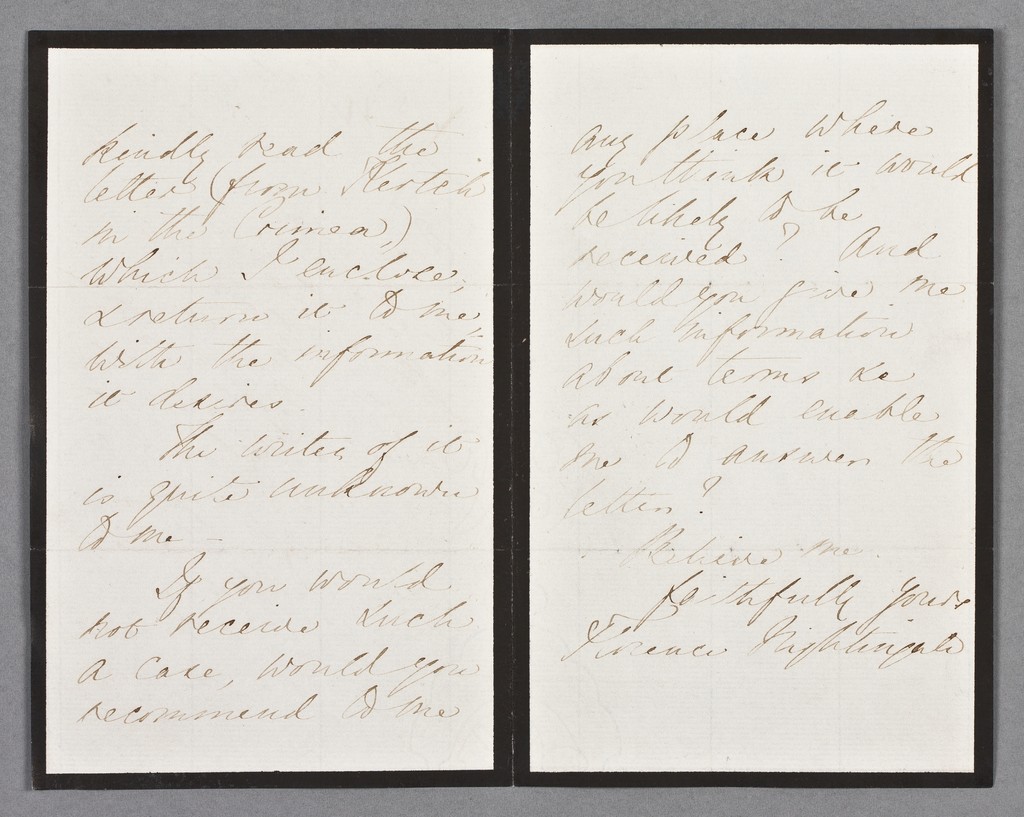 kindly read the
letter (from Kertch
in the Crimea,)
which I enclose,
& return it to me,
with the information
it desires.
The writer of it
is quite unknown
to me -
If you would
not receive such
a case, would you
recommend to me
any place where
you think it would
be likely to be
received? And
would you give me
such information
about terms &c
as would enable
me to answer the
letter?
Believe me
faithfully yours
Florence Nightingale